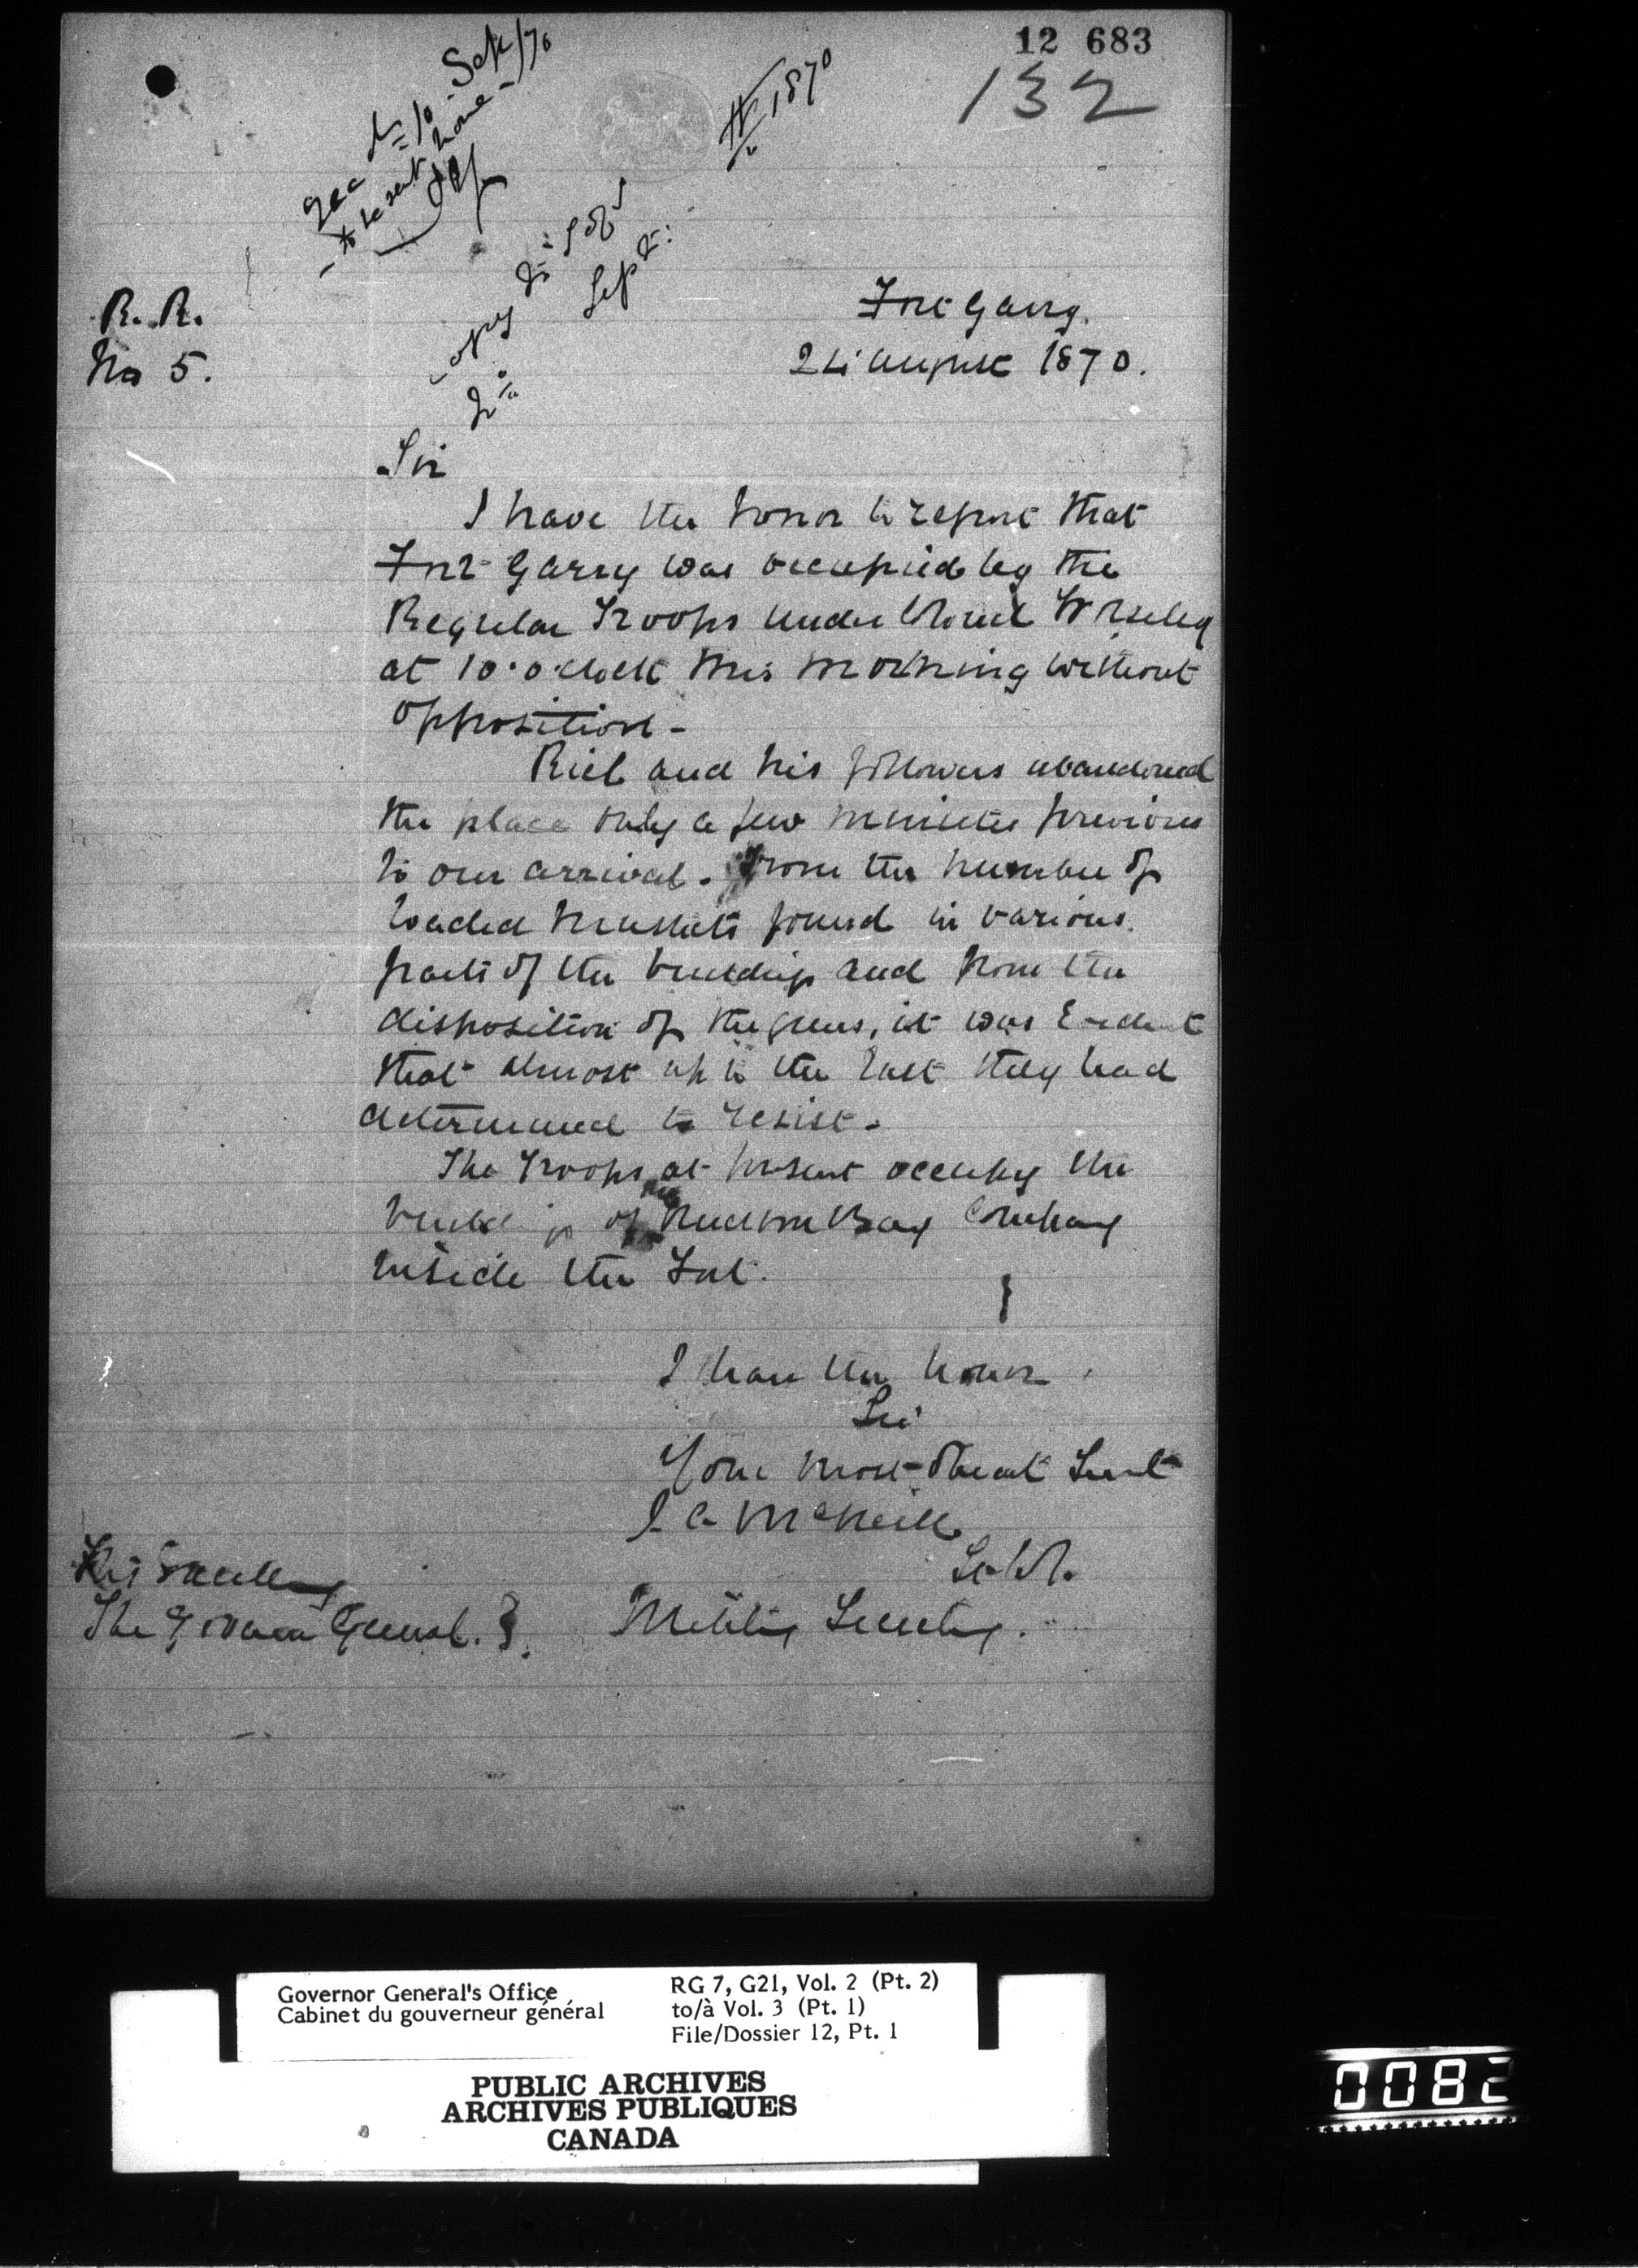 12 683
132
Sept/70
to be sent home -
1870
Sept
R. R.
No 5.
Fort Garry.
24 August 1870.
Sir
I have the honor to report that
Fort Garry was occupied by the
Regular Troops under Colonel Wolseley
at 10 o'clock this morning without
opposition -
Riel and his followers abandoned
the place only a few minutes previous
to our arrival. From the number of
loaded muskets found in various
parts of the buildings and from the
disposition of the guns, it was evident
that almost up to the last they had
determined to resist -
The Troops at present occupy the
buildings of the Hudson Bay Company
inside the Fort.
I have the honor
Sir
Your most obedient Servt
J C McNeill
Lt Col.
His Excellency
The Governor General. } Military Secretary.
Governor General's Office
Cabinet du gouverneur général
RG 7, G21, Vol. 2 (Pt. 2)
to/à Vol. 3 (Pt. 1)
File/Dossier 12, Pt. 1
PUBLIC ARCHIVES
ARCHIVES PUBLIQUES
CANADA
0082